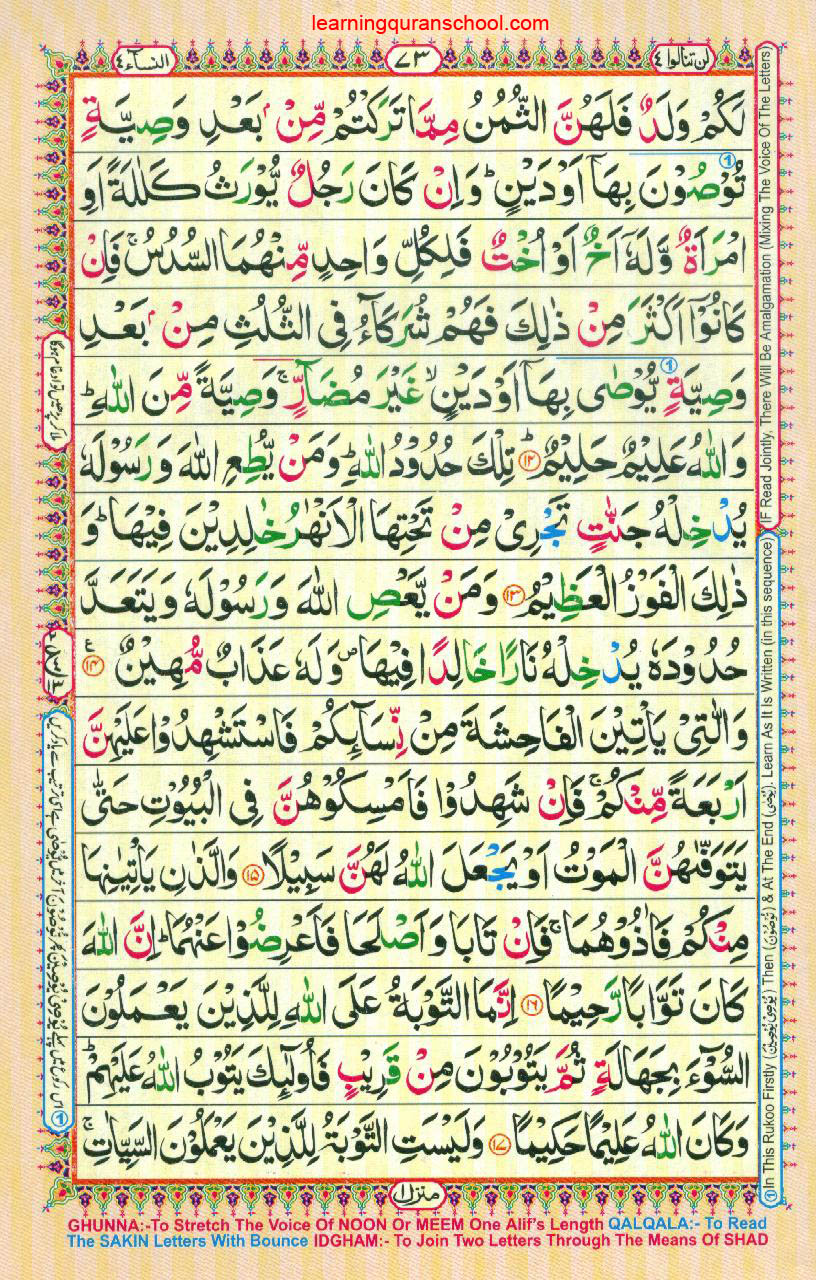 learningquranschool.com
لن تنالوا ٤
٧٣
النسآء ٤
لَكُمْ وَلَدٌ فَلَهُنَّ الثُّمُنُ مِمَّا تَرَكْتُمْ مِّنْۢ بَعْدِ وَصِيَّةٍ
تُوْصُوْنَ بِهَاۤ اَوْ دَيْنٍ ؕ وَ اِنْ كَانَ رَجُلٌ يُّوْرَثُ كَلٰلَةً اَوِ
امْرَاَةٌ وَّلَهٗۤ اَخٌ اَوْ اُخْتٌ فَلِكُلِّ وَاحِدٍ مِّنْهُمَا السُّدُسُ ۚ فَاِنْ
كَانُوْۤا اَكْثَرَ مِنْ ذٰلِكَ فَهُمْ شُرَكَآءُ فِى الثُّلُثِ مِنْۢ بَعْدِ
وَصِيَّةٍ يُّوْصٰى بِهَاۤ اَوْ دَيْنٍ ۙ غَيْرَ مُضَآرٍّ ۚ وَصِيَّةً مِّنَ اللّٰهِ ؕ
وَ اللّٰهُ عَلِيْمٌ حَلِيْمٌ ؕ ﴿١٢﴾ تِلْكَ حُدُوْدُ اللّٰهِ ؕ وَمَنْ يُّطِعِ اللّٰهَ وَ رَسُوْلَهٗ
يُدْخِلْهُ جَنّٰتٍ تَجْرِىْ مِنْ تَحْتِهَا الْاَنْهٰرُ خٰلِدِيْنَ فِيْهَا ؕ وَ
ذٰلِكَ الْفَوْزُ الْعَظِيْمُ ﴿١٣﴾ وَمَنْ يَّعْصِ اللّٰهَ وَ رَسُوْلَهٗ وَ يَتَعَدَّ
حُدُوْدَهٗ يُدْخِلْهُ نَارًا خَالِدًا فِيْهَا ۪ وَ لَهٗ عَذَابٌ مُّهِيْنٌ ﴿١٤﴾ ع
وَ الّٰتِىْ يَاْتِيْنَ الْفَاحِشَةَ مِنْ نِّسَآئِكُمْ فَاسْتَشْهِدُوْا عَلَيْهِنَّ
اَرْبَعَةً مِّنْكُمْ ۚ فَاِنْ شَهِدُوْا فَاَمْسِكُوْهُنَّ فِى الْبُيُوْتِ حَتّٰى
يَتَوَفّٰىهُنَّ الْمَوْتُ اَوْ يَجْعَلَ اللّٰهُ لَهُنَّ سَبِيْلًا ﴿١٥﴾ وَالَّذٰنِ يَاْتِيٰنِهَا
مِنْكُمْ فَاٰذُوْهُمَا ۚ فَاِنْ تَابَا وَ اَصْلَحَا فَاَعْرِضُوْا عَنْهُمَا ؕ اِنَّ اللّٰهَ
كَانَ تَوَّابًا رَّحِيْمًا ﴿١٦﴾ اِنَّمَا التَّوْبَةُ عَلَى اللّٰهِ لِلَّذِيْنَ يَعْمَلُوْنَ
السُّوْٓءَ بِجَهَالَةٍ ثُمَّ يَتُوْبُوْنَ مِنْ قَرِيْبٍ فَاُولٰٓئِكَ يَتُوْبُ اللّٰهُ عَلَيْهِمْ ؕ
وَكَانَ اللّٰهُ عَلِيْمًا حَكِيْمًا ﴿١٧﴾ وَلَيْسَتِ التَّوْبَةُ لِلَّذِيْنَ يَعْمَلُوْنَ السَّيِّاٰتِ ۚ
منزل ١
①In This Rukoo Firstly (يُوْصِىْ يُوْصِيْنَ) Then (تُوْصُوْنَ) & At The End (يُوْصٰى). Learn As It Is Written (in this sequence)
IF Read Jointly, There Will Be Amalgamation (Mixing The Voice Of The Letters)
GHUNNA:-To Stretch The Voice Of NOON Or MEEM One Alif's Length QALQALA:- To Read
The SAKIN Letters With Bounce IDGHAM:- To Join Two Letters Through The Means Of SHAD